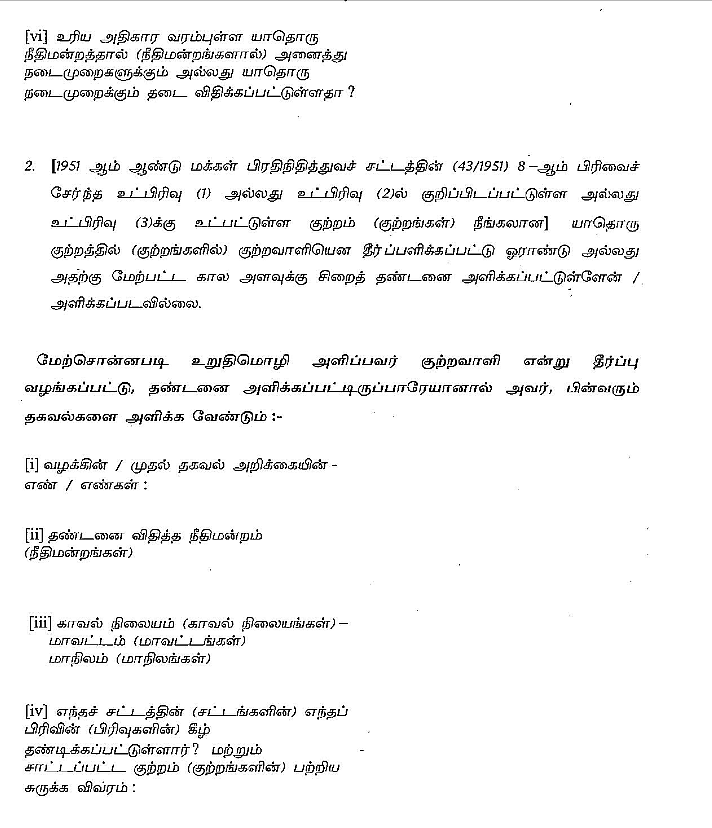 [vi] உரிய அதிகார வரம்புள்ள யாதொரு
நீதிமன்றத்தால் (நீதிமன்றங்களால்) அனைத்து
நடைமுறைகளுக்கும் அல்லது யாதொரு
நடைமுறைக்கும் தடை விதிக்கப்பட்டுள்ளதா ?
2. [1951 ஆம் ஆண்டு மக்கள் பிரதிநிதித்துவச் சட்டத்தின் (43/1951) 8 –ஆம் பிரிவைச்
சேர்ந்த உட்பிரிவு (1) அல்லது உட்பிரிவு (2)ல் குறிப்பிடப்பட்டுள்ள அல்லது
உட்பிரிவு (3)க்கு உட்பட்டுள்ள குற்றம் (குற்றங்கள்) நீங்கலான] யாதொரு
குற்றத்தில் (குற்றங்களில்) குற்றவாளியென தீர்ப்பளிக்கப்பட்டு ஓராண்டு அல்லது
அதற்கு மேற்பட்ட கால அளவுக்கு சிறைத் தண்டனை அளிக்கப்பட்டுள்ளேன் /
அளிக்கப்படவில்லை.
மேற்சொன்னபடி உறுதிமொழி அளிப்பவர் குற்றவாளி என்று தீர்ப்பு
வழங்கப்பட்டு, தண்டனை அளிக்கப்பட்டிருப்பாரேயானால் அவர், பின்வரும்
தகவல்களை அளிக்க வேண்டும் :-
[i] வழக்கின் / முதல் தகவல் அறிக்கையின் -
எண் / எண்கள் :
[ii] தண்டனை விதித்த நீதிமன்றம்
(நீதிமன்றங்கள்)
[iii] காவல் நிலையம் (காவல் நிலையங்கள்) –
மாவட்டம் (மாவட்டங்கள்)
மாநிலம் (மாநிலங்கள்)
[iv] எந்தச் சட்டத்தின் (சட்டங்களின்) எந்தப்
பிரிவின் (பிரிவுகளின்) கீழ்
தண்டிக்கப்பட்டுள்ளார் ? மற்றும் -
சாட்டப்பட்ட குற்றம் (குற்றங்களின்) பற்றிய
சுருக்க விவரம் :